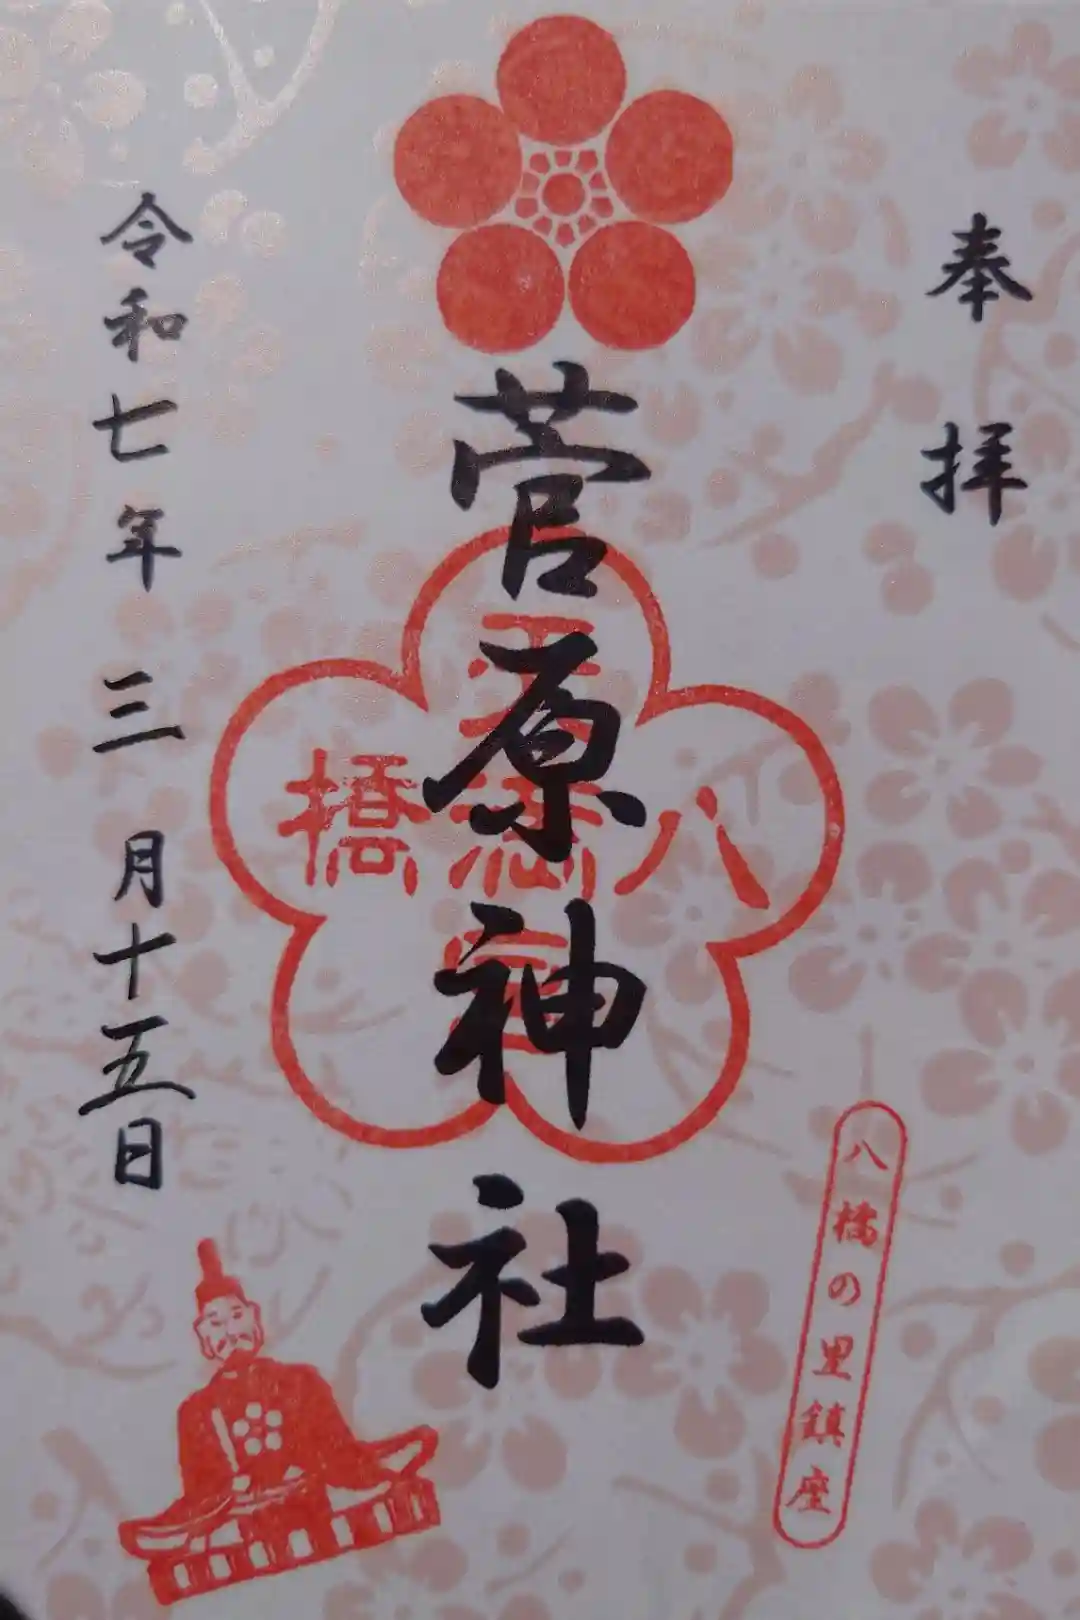 奉拝
菅原神社
八橋
八橋の里鎮座
令和七年三月十五日